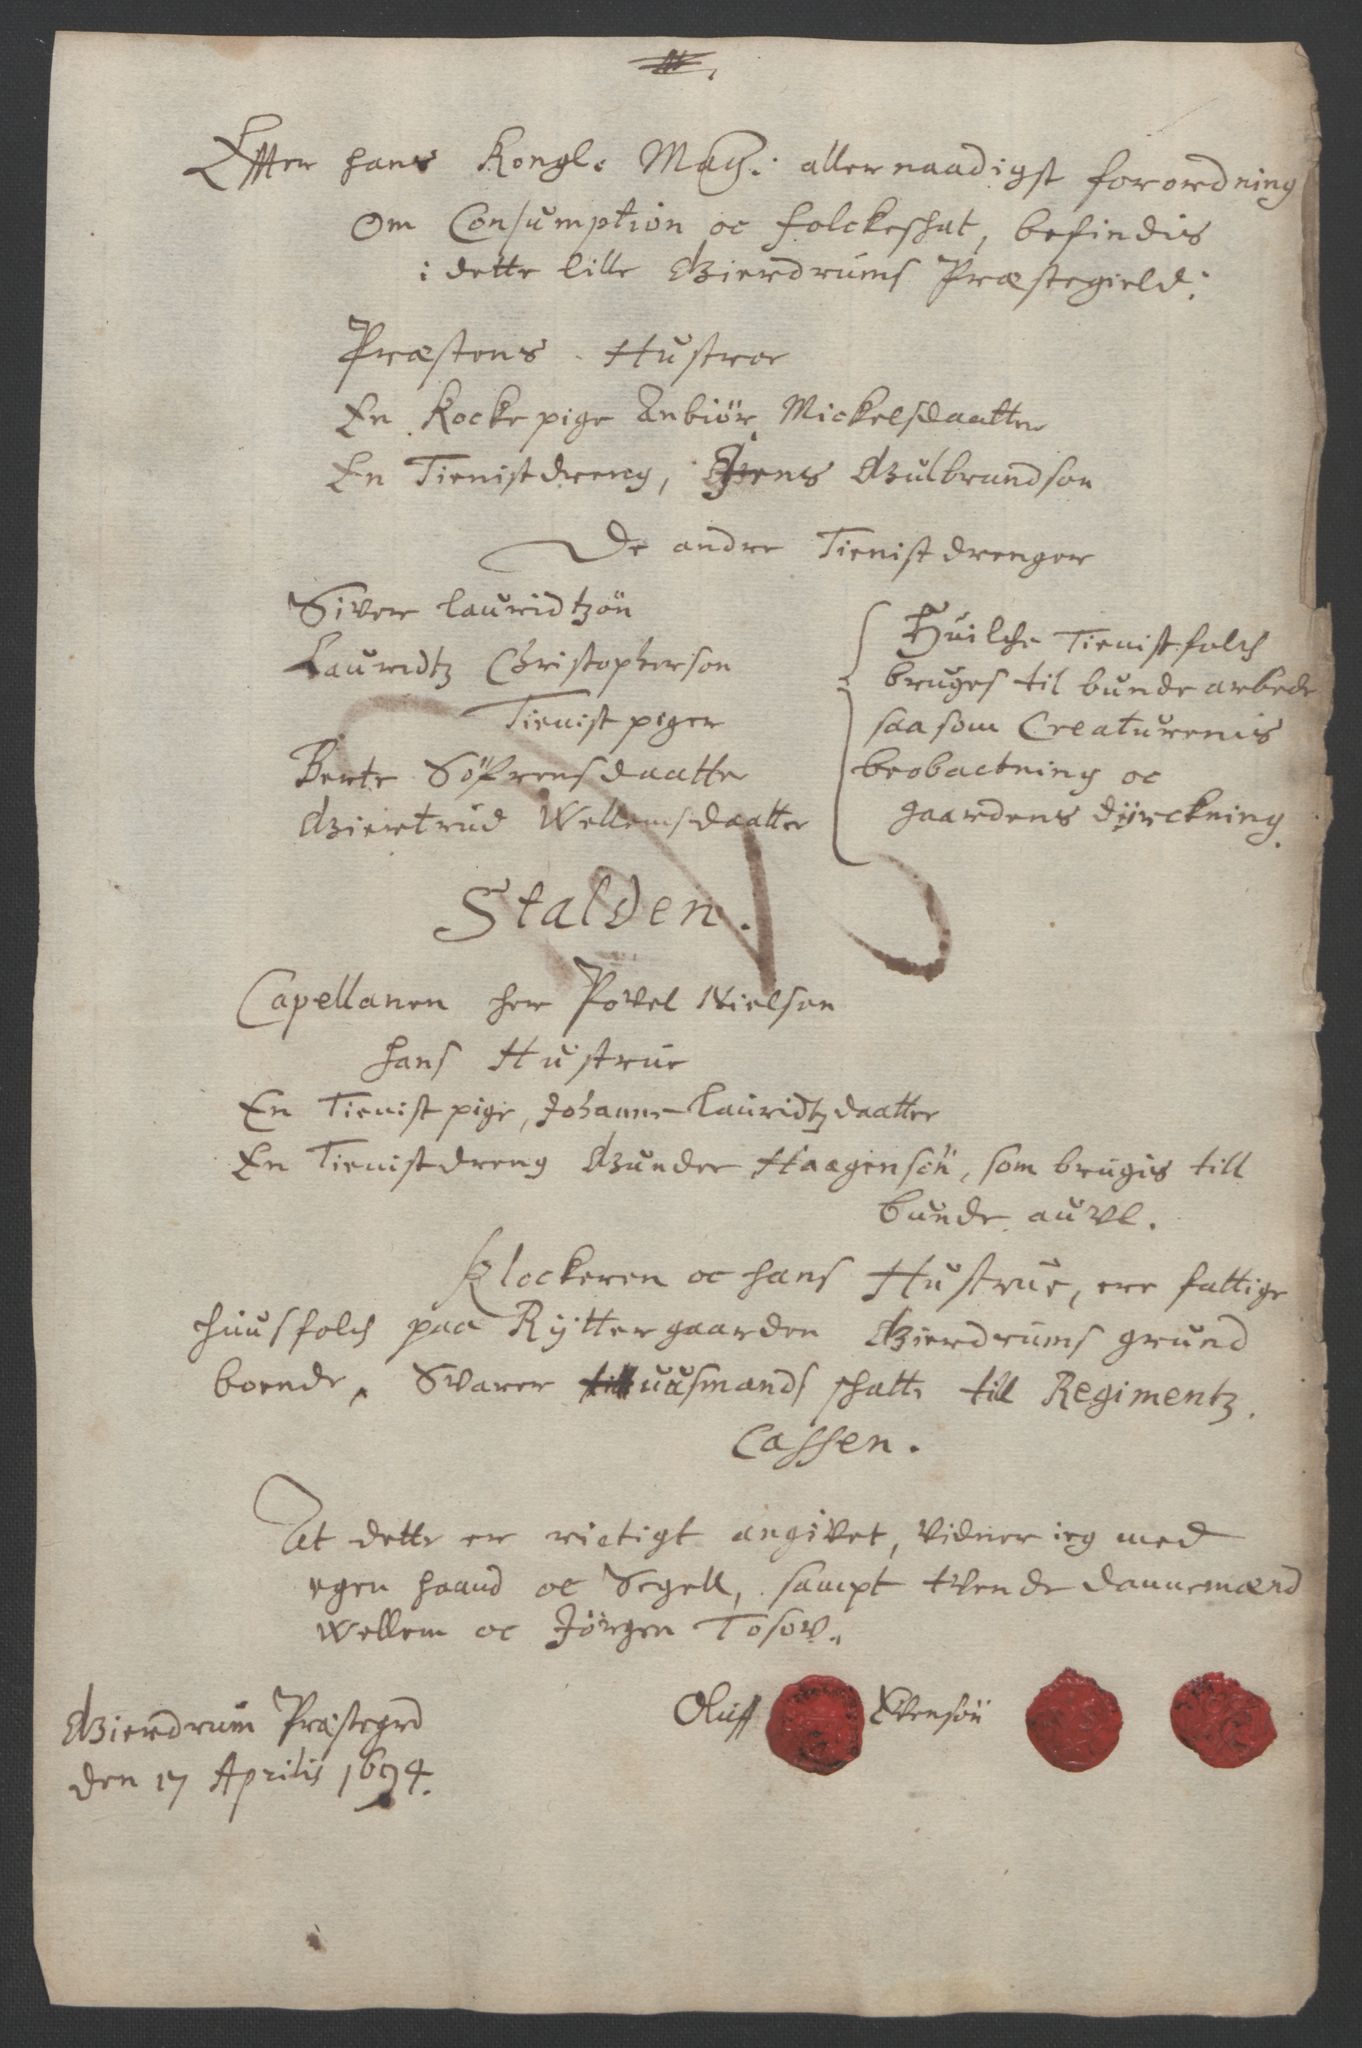 Effter hans Kongl. May: allernaadigst forordning
Om Consumption oc folckeschat, befindis
i dette lille Gierdrums Præstegield:
Præstens Hustroe
En Kockepige Anbiør Mickelsdaatter
En Tienistdreng, Jens Gulbrandsøn
De andre Tienistdrenger
Siver Lauridtzøn
Lauridtz Christophersøn
Tienistpiger
Berte Søfrensdaatter
Giertrud Wellemsdaatter
Huilche Tienistfolch
bruges til bunde arbede
saasom Creaturenis
beobactning oc
gaardens dyrckning.
Stalden.
Capellanen her Povel Nielsøn
hans Hustrue
En Tienistpige, Johanne Lauridtzdaatter
En Tienistdreng Gunder Haagensøn, som brugis till
bunde auvl.
Klockeren oc hans Hustrue, ere fattige
huusfolch paa Ryttergaarden Gierdrums grund
boende, Svarer uusmands schatt till Regimentz
Cassen.
At dette er rictigt angivet, vidner ieg med
egen haand oc Segell, sampt tvende dannemænd
Wellem oc Jørgen Tosov.
Oluff Svensøn
Gierdrum Præstegrd
den 17 Aprilis 1694.